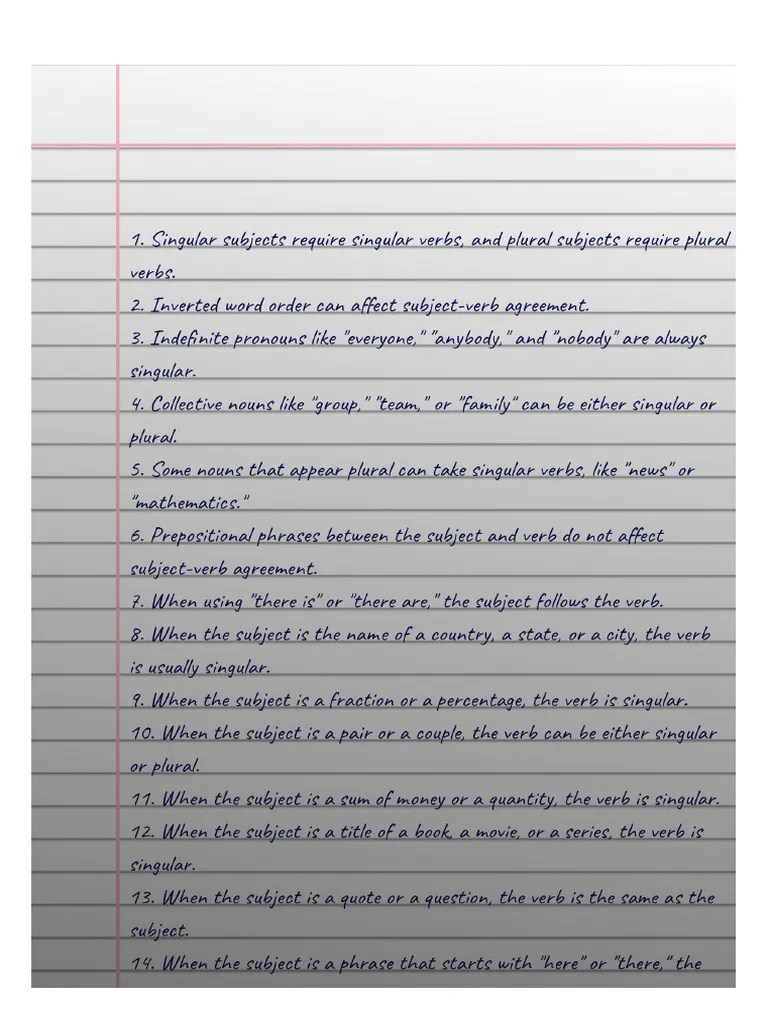 1. Singular subjects require singular verbs, and plural subjects require plural
verbs.
2. Inverted word order can affect subject-verb agreement.
3. Indefinite pronouns like "everyone," "anybody," and "nobody" are always
singular.
4. Collective nouns like "group," "team," or "family" can be either singular or
plural.
5. Some nouns that appear plural can take singular verbs, like "news" or
"mathematics."
6. Prepositional phrases between the subject and verb do not affect
subject-verb agreement.
7. When using "there is" or "there are," the subject follows the verb.
8. When the subject is the name of a country, a state, or a city, the verb
is usually singular.
9. When the subject is a fraction or a percentage, the verb is singular.
10. When the subject is a pair or a couple, the verb can be either singular
or plural.
11. When the subject is a sum of money or a quantity, the verb is singular.
12. When the subject is a title of a book, a movie, or a series, the verb is
singular.
13. When the subject is a quote or a question, the verb is the same as the
subject.
14. When the subject is a phrase that starts with "here" or "there," the